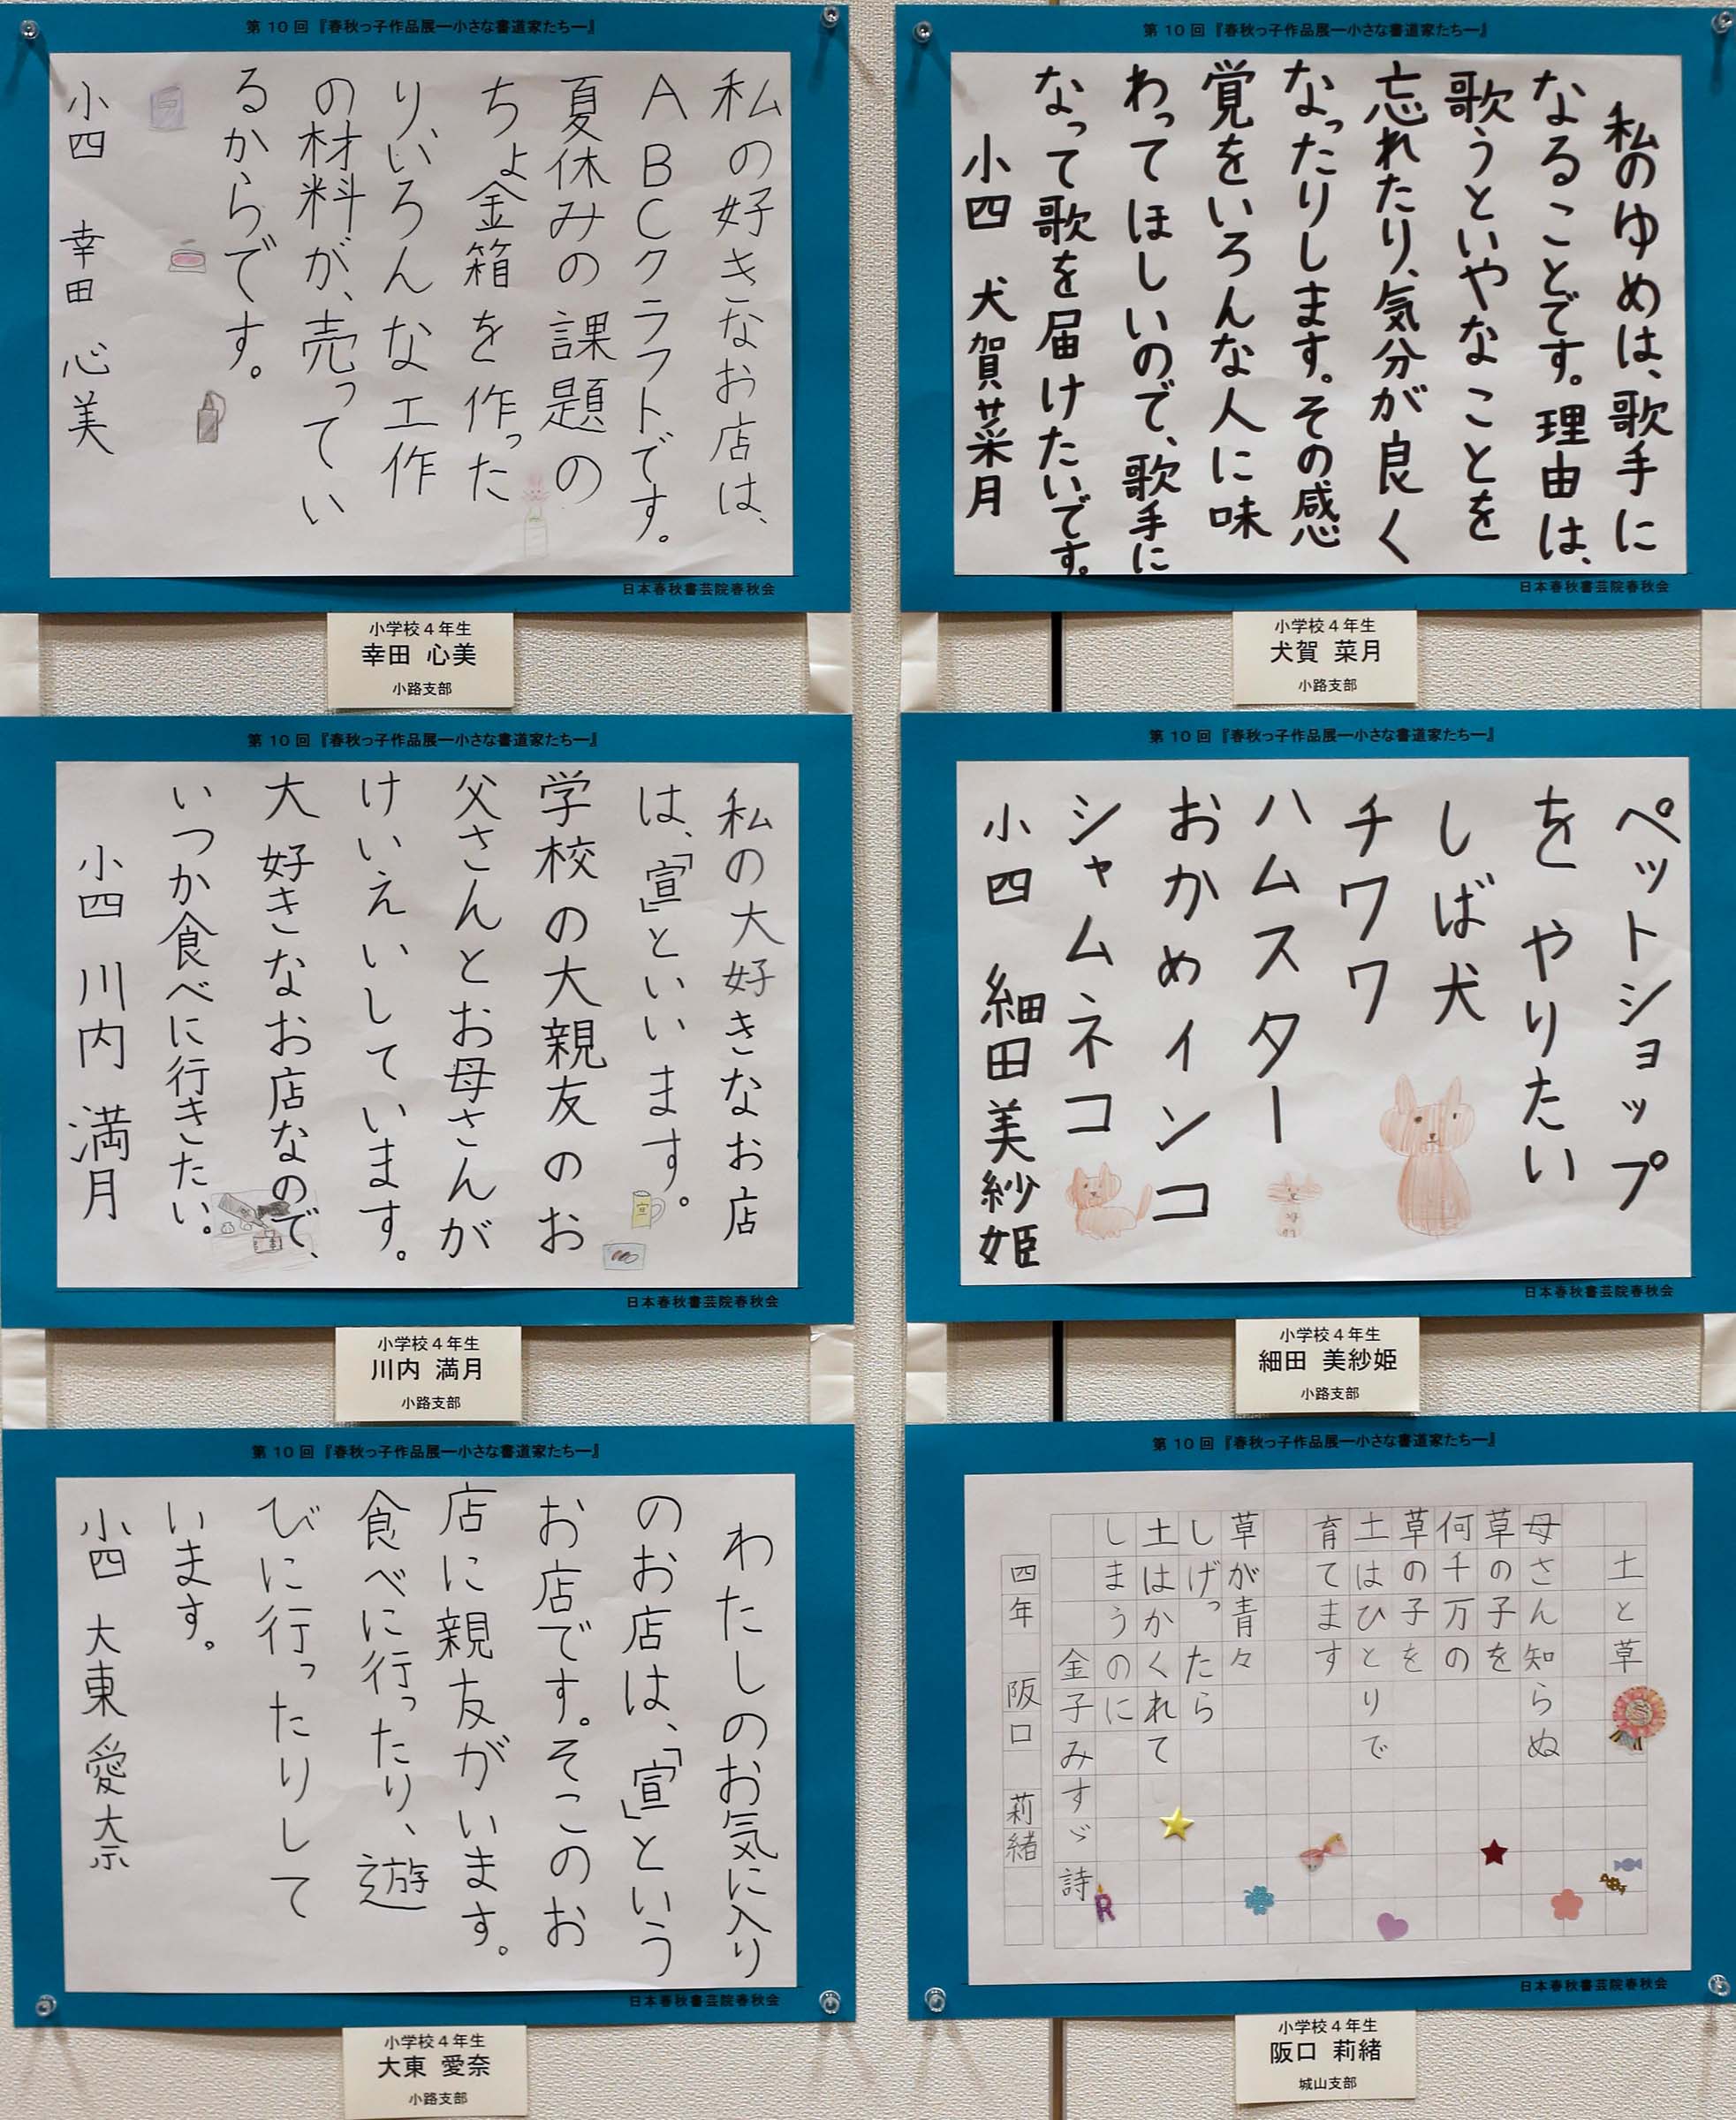 第10回『春秋っ子作品展ー小さな書道家たちー』
私の好きなお店は、
ABCクラフトです。
夏休みの課題の
ちょ金箱を作った
り、いろんな工作
の材料が、売ってい
るからです。
小四 幸田 心美
日本春秋書芸院春秋会
小学校4年生
幸田 心美
小路支部
第10回『春秋っ子作品展ー小さな書道家たちー』
私のゆめは、歌手に
なることです。理由は、
歌うといやなことを
忘れたり、気分が良く
なったりします。その感
覚をいろんな人に味
わってほしいので、歌手に
なって歌を届けたいです。
小四 犬賀菜月
日本春秋書芸院春秋会
小学校4年生
犬賀 菜月
小路支部
第10回『春秋っ子作品展ー小さな書道家たちー』
私の大好きなお店
は、「宣」といいます。
学校の大親友のお
父さんとお母さんが
けいえいしています。
大好きなお店なので、
いつか食べに行きたい。
小四 川内 満月
日本春秋書芸院春秋会
小学校4年生
川内 満月
小路支部
第10回『春秋っ子作品展ー小さな書道家たちー』
ペットショップ
をやりたい
しば犬
チワワ
ハムスター
おかめインコ
シャムネコ
小四 細田美紗姫
日本春秋書芸院春秋会
小学校4年生
細田 美紗姫
小路支部
第10回『春秋っ子作品展ー小さな書道家たちー』
わたしのお気に入り
のお店は、「宣」という
お店です。そこのお
店に親友がいます。
食べに行ったり、遊
びに行ったりして
います。
小四 大東 愛奈
日本春秋書芸院春秋会
小学校4年生
大東 愛奈
小路支部
第10回『春秋っ子作品展ー小さな書道家たちー』
土と草
母さん知らぬ
草の子を
何千万の
草の子を
土はひとりで
育てます
草が青々
しげったら
土はかくれて
しまうのに
金子みすゞ 詩
四年 阪口 莉緒
R
日本春秋書芸院春秋会
小学校4年生
阪口 莉緒
城山支部